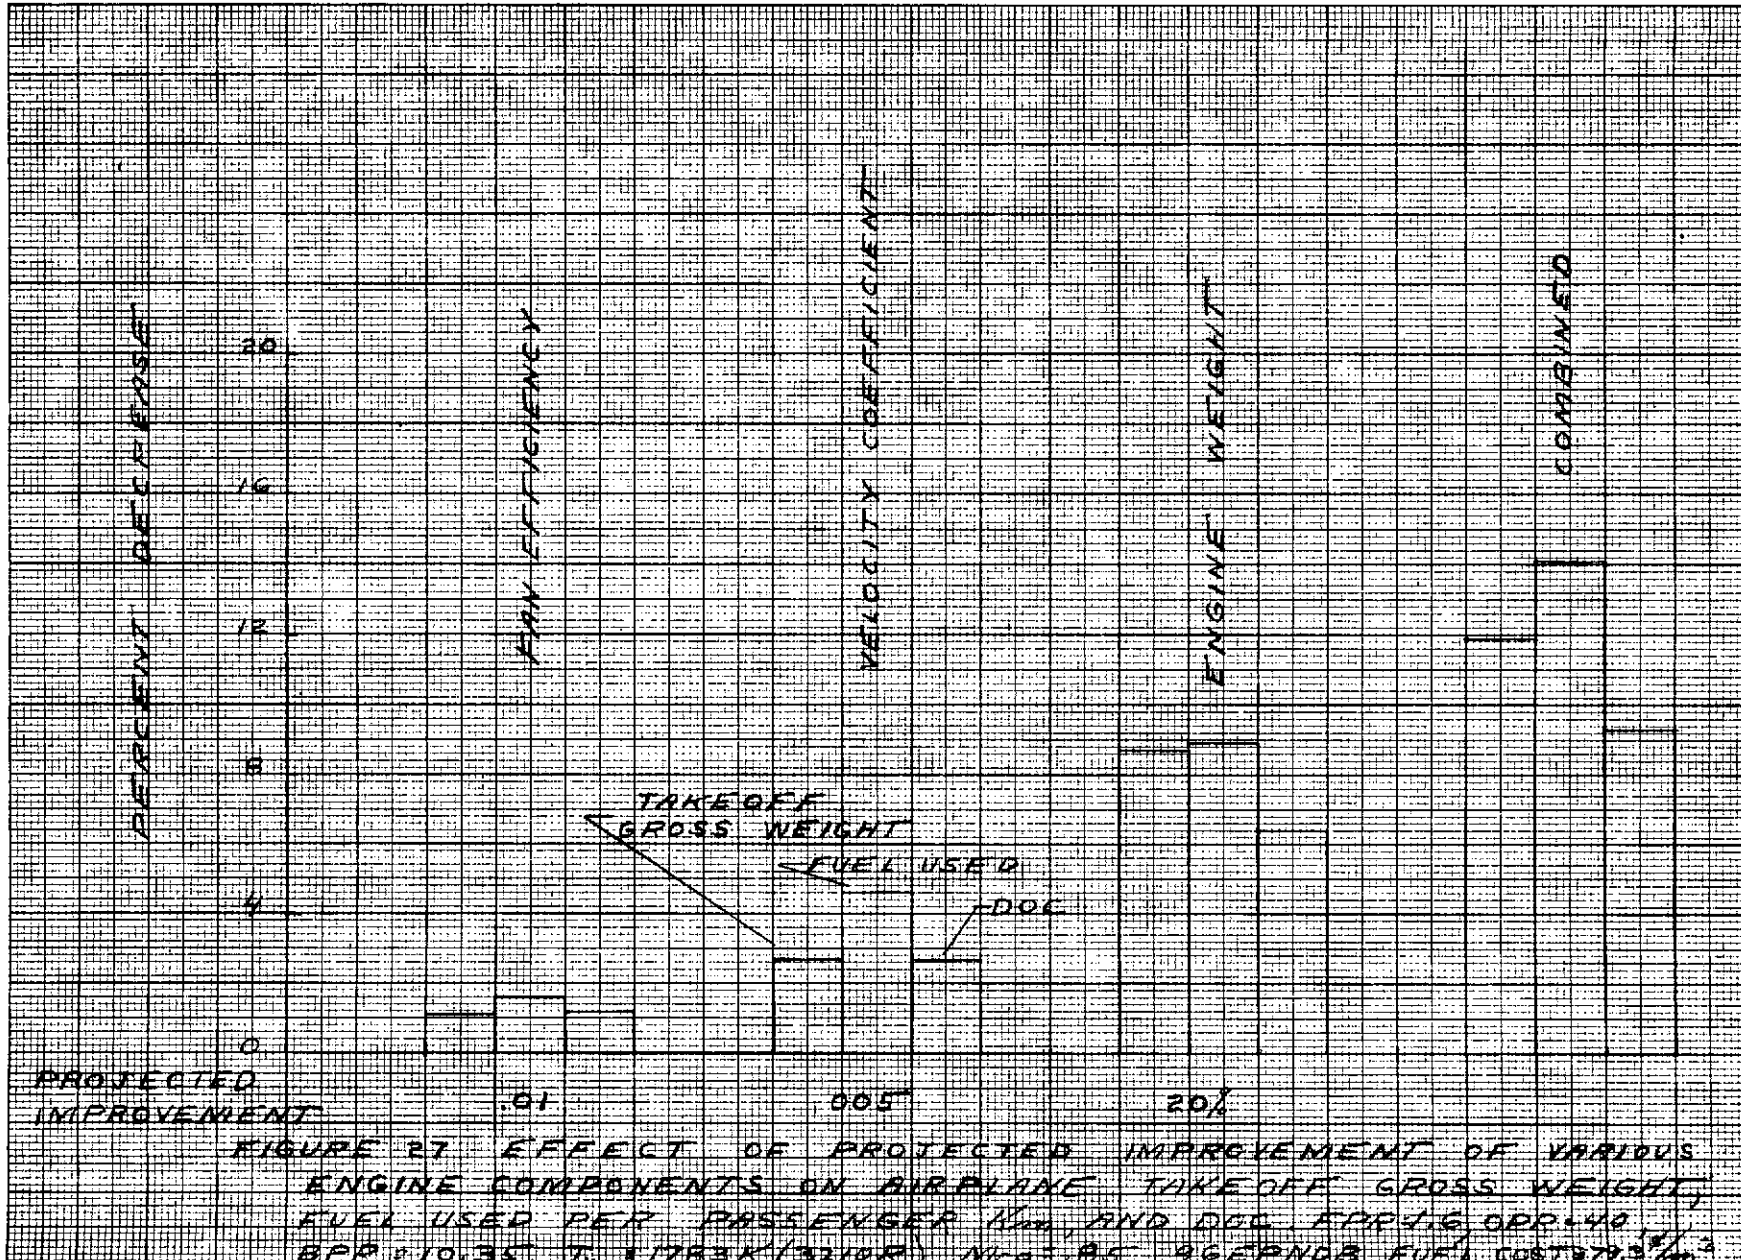 PERCENT DECREASE
20
16
12
8
4
0
FAN EFFICIENCY
VELOCITY COEFFICIENT
ENGINE WEIGHT
COMBINED
TAKEOFF
GROSS WEIGHT
FUEL USED
DOC
PROJECTED
IMPROVEMENT
.01
005
20%
FIGURE 27 EFFECT OF PROJECTED IMPROVEMENT OF VARIOUS
ENGINE COMPONENTS ON AIRPLANE TAKEOFF GROSS WEIGHT,
FUEL USED PER PASSENGER Km, AND DOC. FPR=1.6, OPR=40,
BPR=10.35 1783K (3210R) .85 96EPNDB FUEL COST